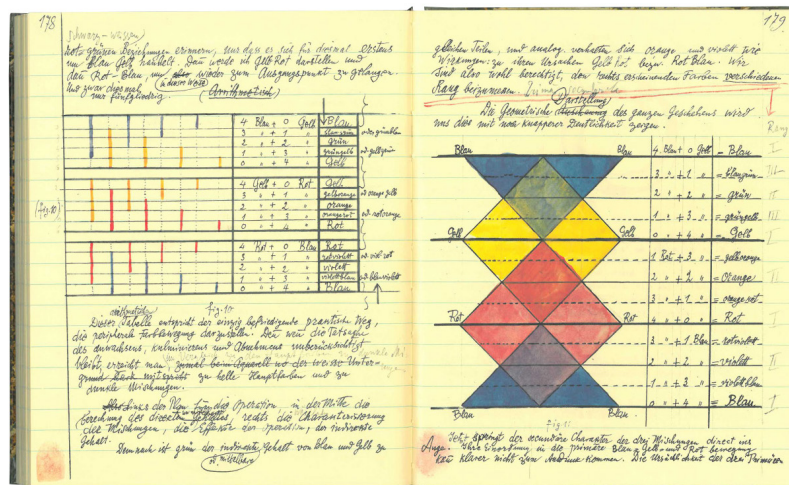 178
schwarz-weissen
rot-grünen Beziehungen erinnern, nur dass es sich für diesmal erstens
um Blau Gelb handelt. Dann werde ich Gelb Rot darstellen und
dan Rot-Blau, um wieder zum Ausgangspunkt zu gelangen.
in dieser Weise
Und zwar diesmal (Arithmetisch)
nur fünfgliedrig
4 Blau + 0 Gelb Blau
3 " + 1 " blaugrün oder grünblau
2 " + 2 " grün
1 " + 3 " grüngelb od gelbgrün
0 " + 4 " Gelb
(fig 10)
4 Gelb + 0 Rot Gelb
3 " + 1 " gelborange od orangegelb
2 " + 2 " orange
1 " + 3 " orangerot od rotorange
0 " + 4 " Rot
4 Rot + 0 Blau Rot
3 " + 1 " rotviolett od viol rot
2 " + 2 " violett
1 " + 3 " violettblau od blauviolett
0 " + 4 " Blau
fig. 10
Dieser Tabelle entspricht der einzig befriedigende practische Weg,
die peripherale Farbbewegung darzustellen. Den wen die Tatsache
des anwachsens, kulminierens und Abnehmens unberücksichtigt
bleibt, erreicht man, zumal beim Aquarell wo der weisse Unter-
grund stark mitspricht zu helle Hauptfarben und zu
dunkle Mischungen.
Also links der Plan für die operation, in der Mitte die
Berechnung des direct, rechts die Characterisierung
der Mischungen, die Effecte der operation, der indirecte
Gehalt.
Demnach ist grün der indirecte Gehalt von Blau und Gelb zu
od. mittelbare
179.
gleichen Teilen, und analog verhalten sich orange und violett wie
Wirkungen zu ihren Ursachen Gelb Rot bezw. Rot Blau. Wir
sind also wohl berechtigt, den rechts erscheinenden Farben verschiedenen
Rang beizumessen.
Darstellung
Die Geometrische des ganzen Geschehens wird
uns dies mit noch knapperer Deutlichkeit zeigen.
Rang
Blau Blau 4 Blau + 0 Gelb = Blau I
3 " + 1 " = blaugrün III
2 " + 2 " = grün II
1 " + 3 " = grüngelb III
Gelb Gelb 0 " + 4 " = Gelb I
1 Rot + 3 " = gelborange
2 " + 2 " = Orange II
3 " + 1 " = orangerot
Rot Rot 4 " + 0 " = Rot I
3 " + 1 Blau = rotviolett
2 " + 2 " = violett II
1 " + 3 " = violettblau
Blau Blau 0 " + 4 " = Blau I
fig. 11
Jetzt springt der secundäre Character der drei Mischungen direct ins
Auge. Ihre Einordnung in die primäre Blau Gelb und Rot bewegung
kan klarer nicht zum Ausdruck kommen. Die Ursächlichkeit der drei Primären